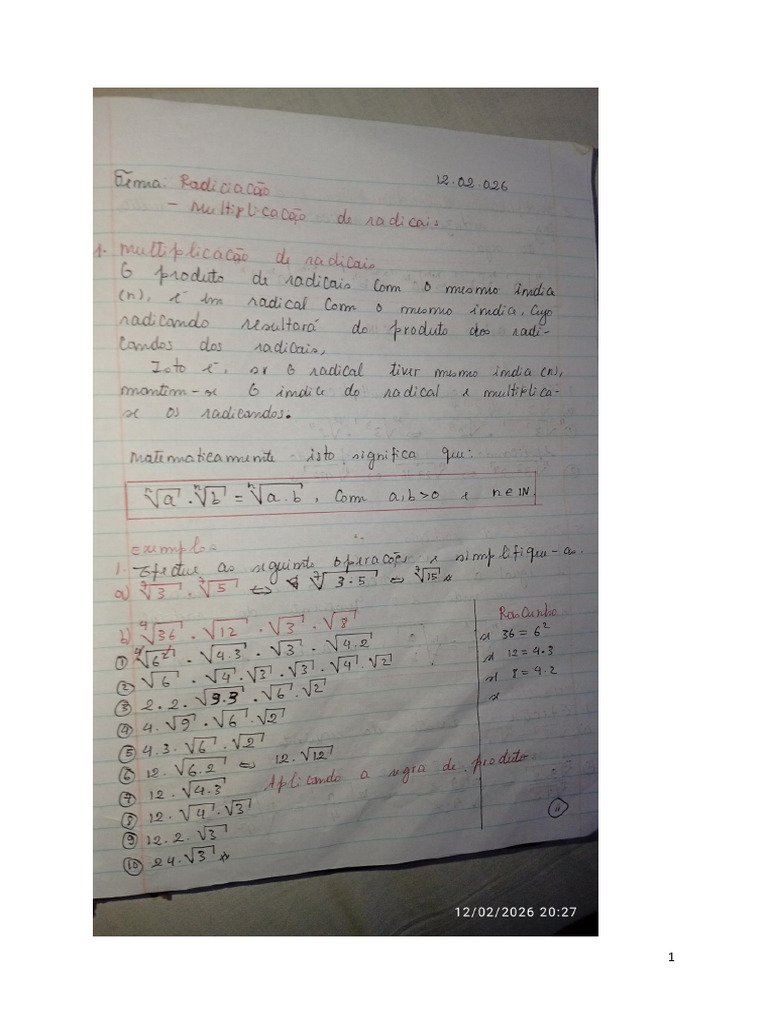 Tema: Radiciação
12.02.026
- Multiplicação de radicais
1. Multiplicação de radicais
O produto de radicais com o mesmo india
(n), é um radical com o mesmo india, cujo
radicando resultará do produto dos radi-
candos dos radicais,
Isto é, se o radical tiver mesmo india (n),
mantém-se o indice do radical e multiplica-
se os radicandos.
Matematicamente isto significa que:
ⁿ√a . ⁿ√b = ⁿ√a.b, com a,b>0 e n∈IN
Exemplos
1. Efectue as seguinte operações e simplifique-as.
a) ⁷√3 . ⁷√5 ⇔ ⁷√3.5 ⇔ ⁷√15
b) ⁴√36 . √12 . √3 . √8
① ⁴√6² . √4.3 . √3 . √4.2
② √6 . √4 . √3 . √3 . √4 . √2
③ 2.2.√3.3 . √6 . √2
④ 4.√9 . √6 . √2
⑤ 4.3.√6 . √2
⑥ 12.√6.2 ⇔ 12.√12
⑦ 12.√4.3 Aplicando a regra de produto
⑧ 12.√4 . √3
⑨ 12.2.√3
⑩ 24.√3
Rascunho
36 = 6²
12 = 4.3
8 = 4.2
12/02/2026 20:27
1